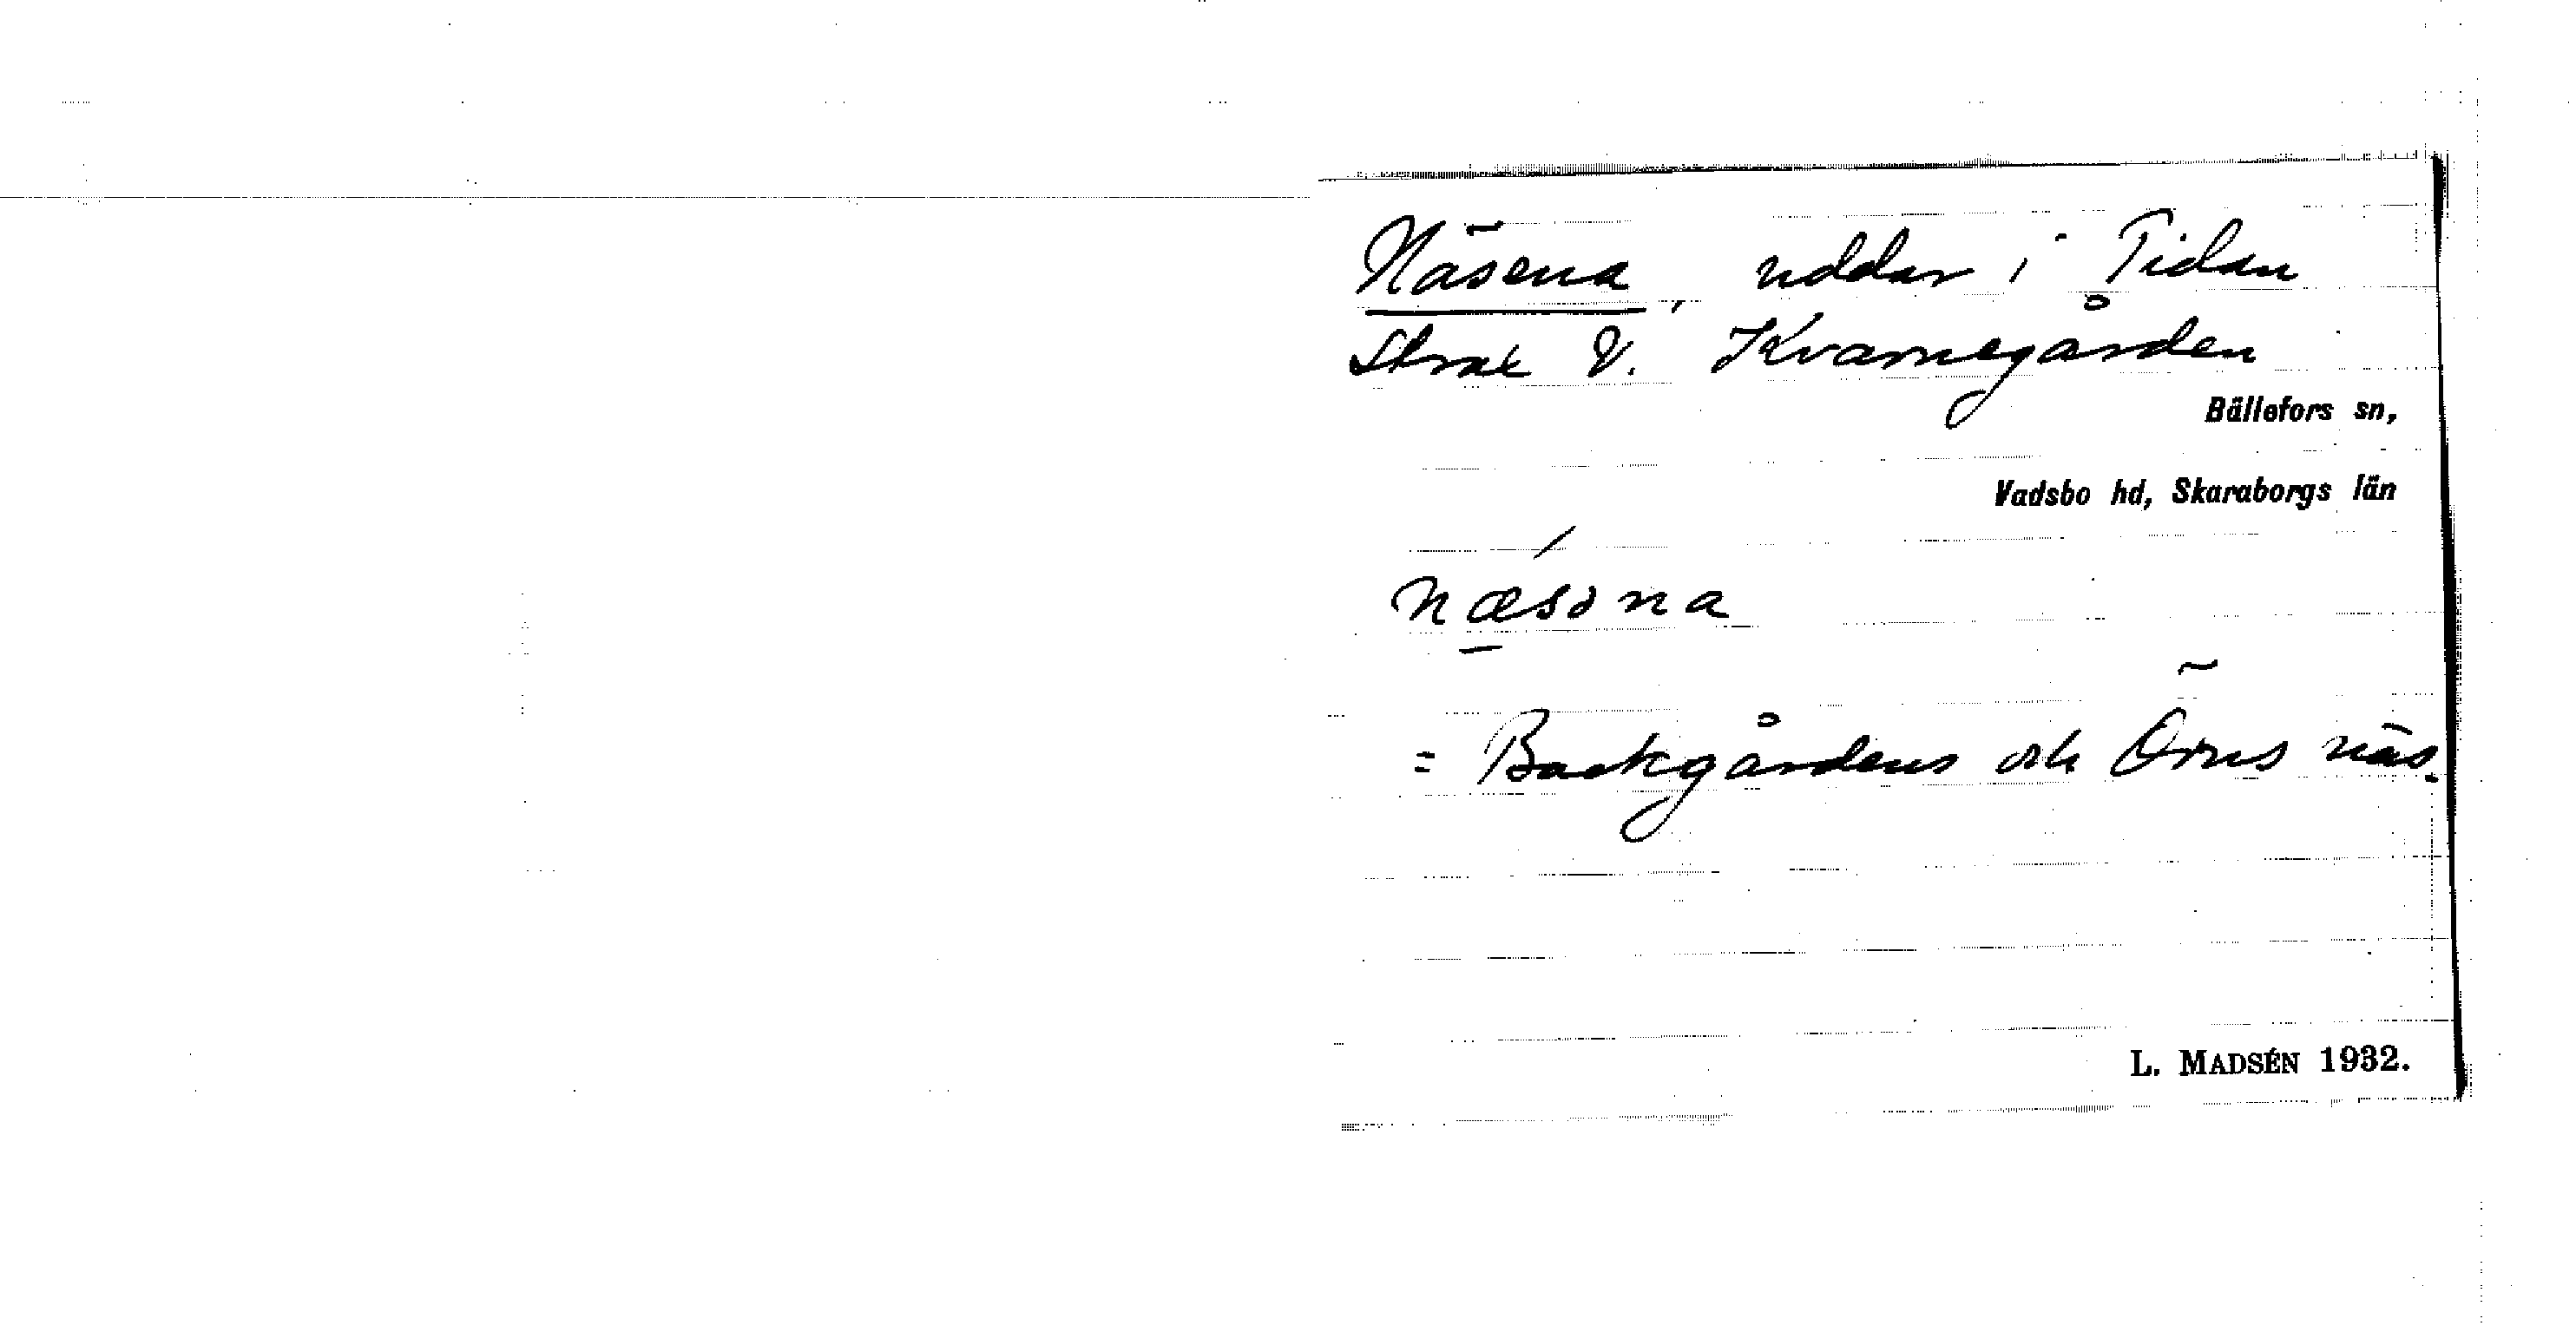 Näsena, uddar i Tidan
Strax V. Kvarnegården
Bällefors sn,
Vadsbo hd, Skaraborgs län
næsəna
= Backgårdens och Örns näs.
L. MADSÉN 1932.